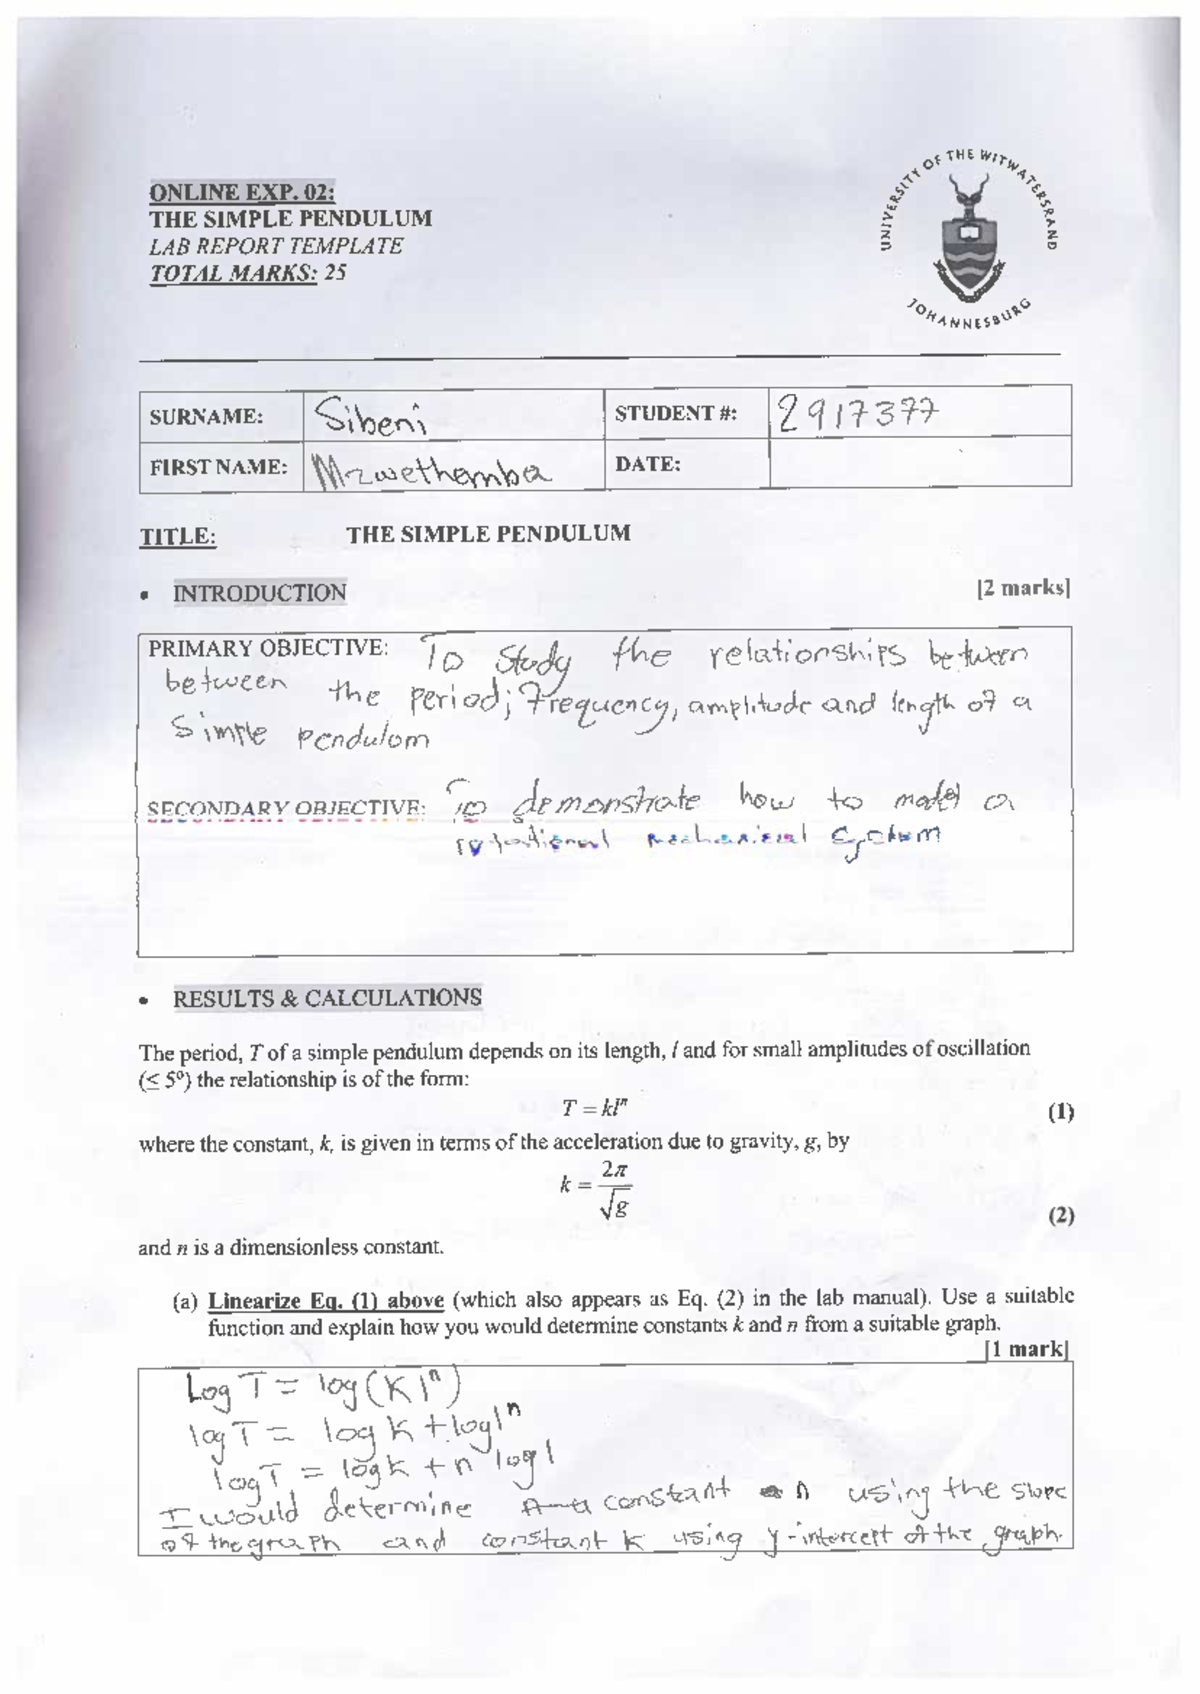 ONLINE EXP. 02:
THE SIMPLE PENDULUM
LAB REPORT TEMPLATE
TOTAL MARKS: 25
UNIVERSITY OF THE WITWATERSRAND
JOHANNESBURG
SURNAME: Sibeni STUDENT #: 2917377
FIRST NAME: Mzwethemba DATE:
TITLE: THE SIMPLE PENDULUM
• INTRODUCTION [2 marks]
PRIMARY OBJECTIVE: To study the relationships between
between the period; frequency, amplitude and length of a
simple pendulom
SECONDARY OBJECTIVE: To demonstrate how to model a
rotational mechanical system
• RESULTS & CALCULATIONS
The period, T of a simple pendulum depends on its length, l and for small amplitudes of oscillation
(≤ 5°) the relationship is of the form:
T = klⁿ (1)
where the constant, k, is given in terms of the acceleration due to gravity, g, by
k = 2π/√g (2)
and n is a dimensionless constant.
(a) Linearize Eq. (1) above (which also appears as Eq. (2) in the lab manual). Use a suitable
function and explain how you would determine constants k and n from a suitable graph.
[1 mark]
Log T = log(K lⁿ)
log T = log k + log lⁿ
log T = log k + n log l
I would determine constant n using the slope
of the graph and constant k using y-intercept of the graph.